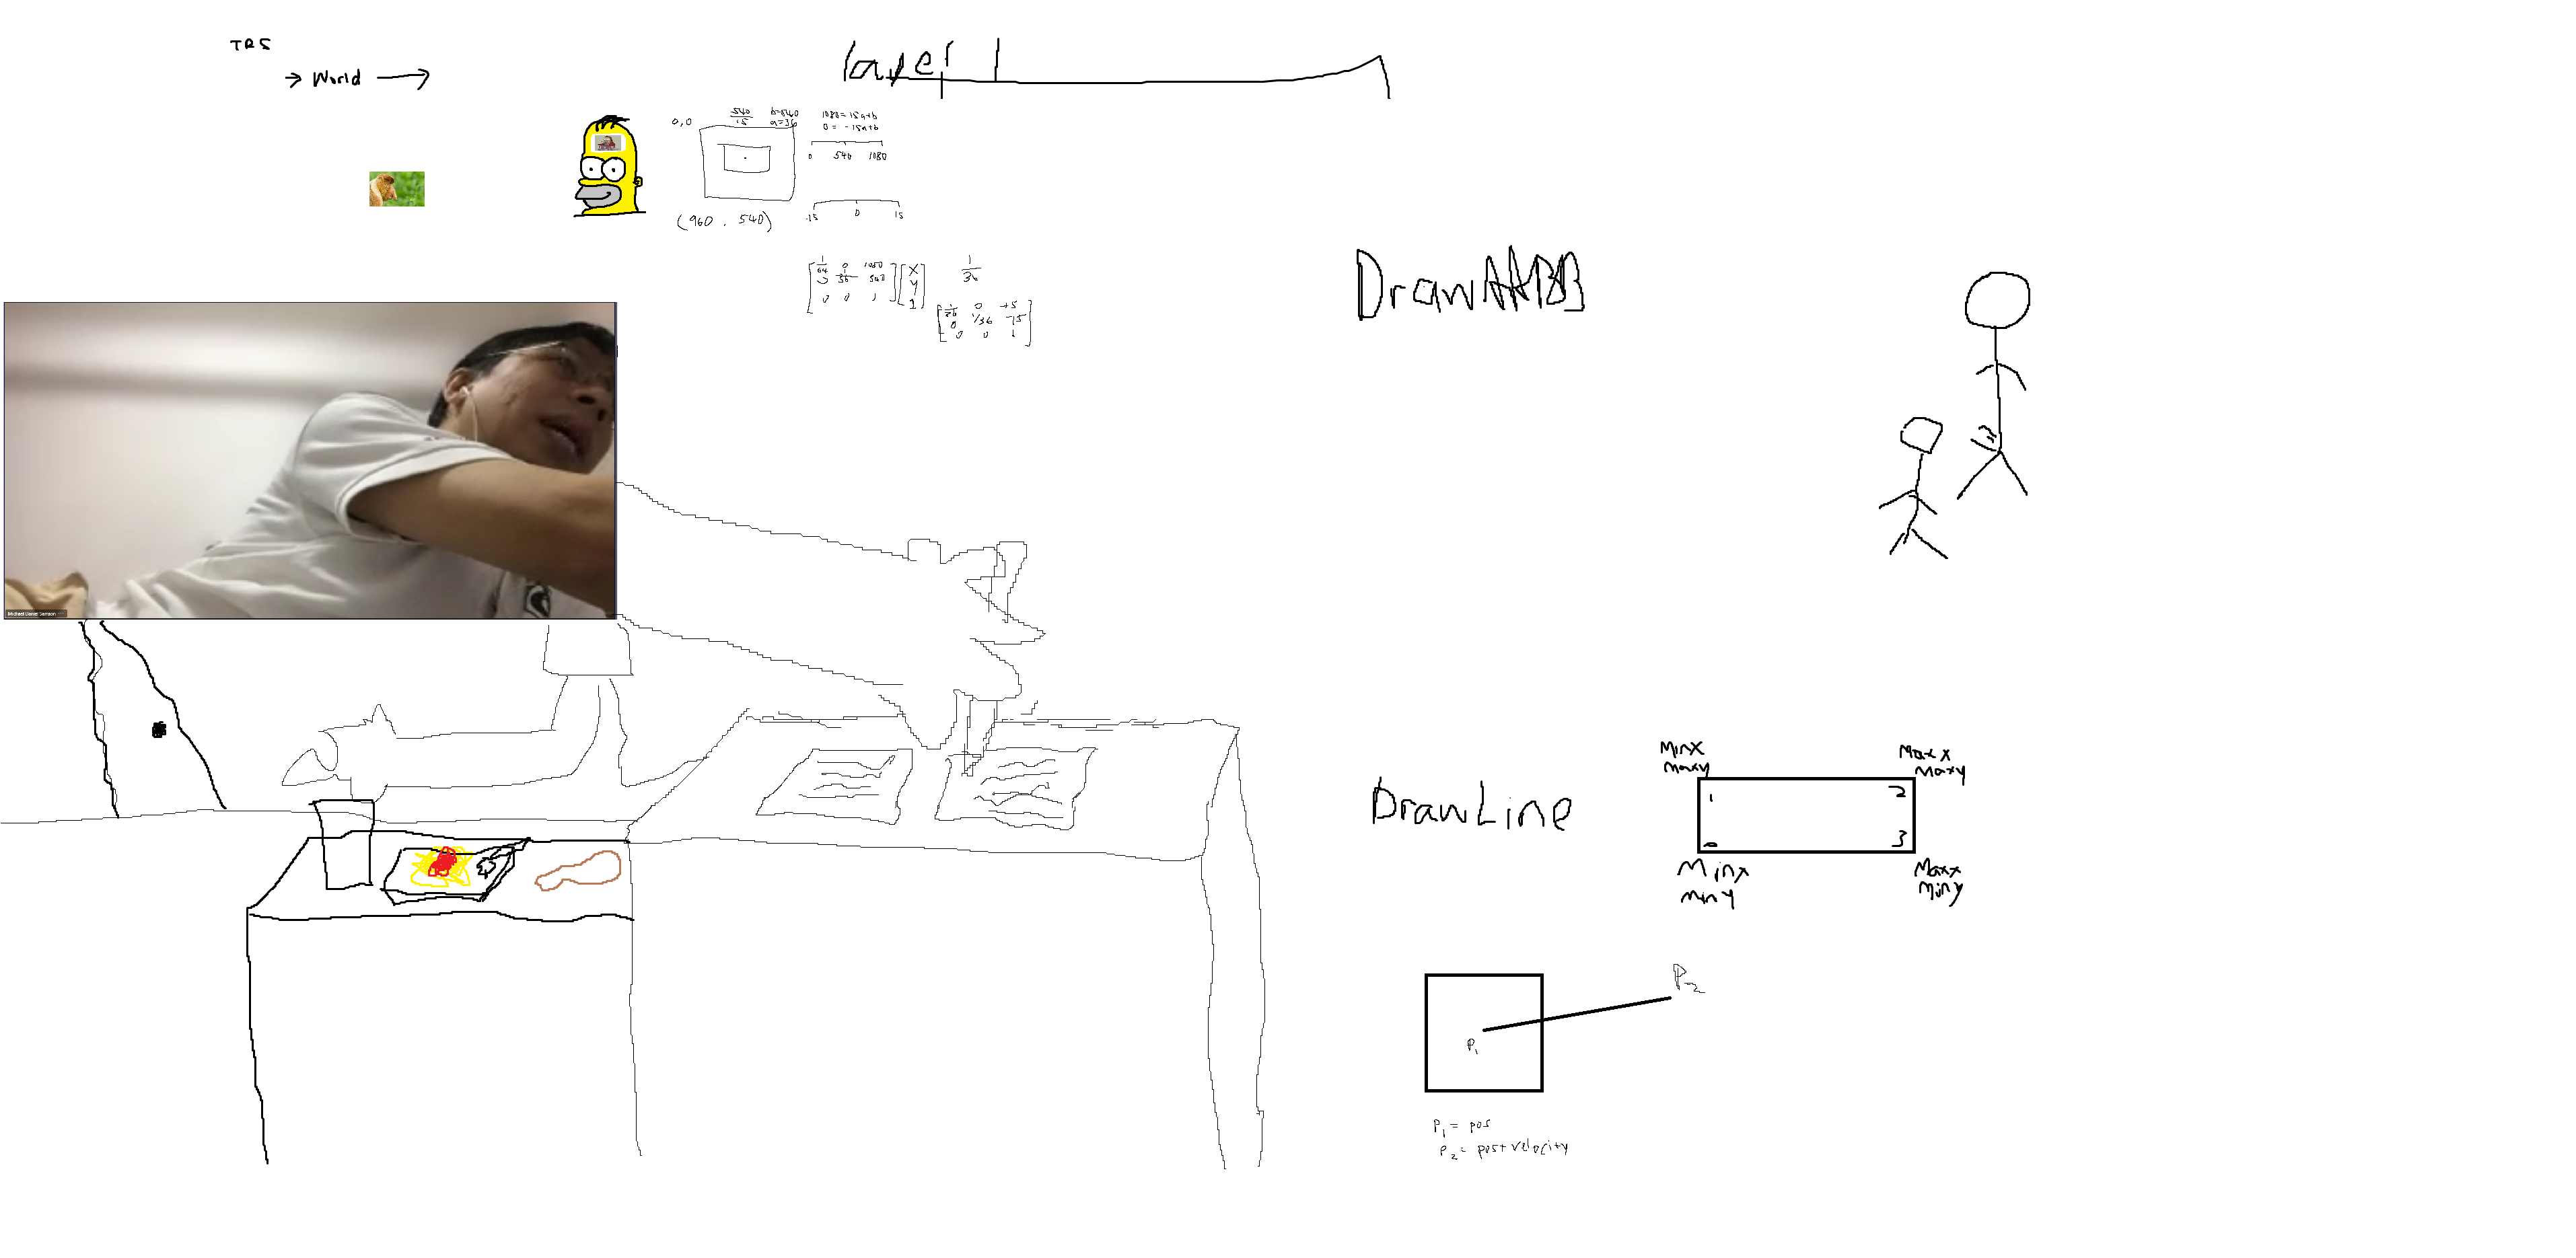 TRS
→ World →
layer 1
0,0
540
15
b=540
a=36
1080=15a+b
0 = -15a+b
0 540 1080
(960, 540)
-15 0 15
1
64
0
0
0 0 1
X
Y
1
1
36
0
0 1/36
0 0 1
DrawAABB
DrawLine
MinX
maxy
Maxx
maxy
1 2
0 3
Minx
miny
Maxx
miny
P2
P1
P1 = pos
P2 = pos+velocity